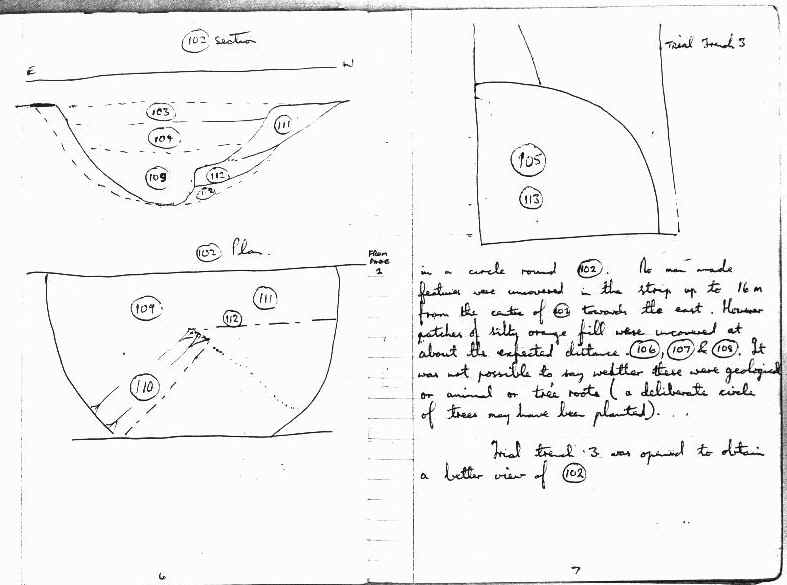 102 Section
E
W
103
104
111
109
112
102 Plan
FROM PAGE 1
109
111
112
110
6
Trial Trench 3
105
113
in a circle round 102. No man made
features were uncovered in the strip up to 16 m
from the centre of 102 towards the east. However
patches of silty orange fill were uncovered at
about the expected distance. 106, 107 & 108. It
was not possible to say weather these were geological
or animal or tree roots (a deliberate circle
of trees may have been planted). . .
Trial trench 3 was opened to obtain
a better view of 102
7